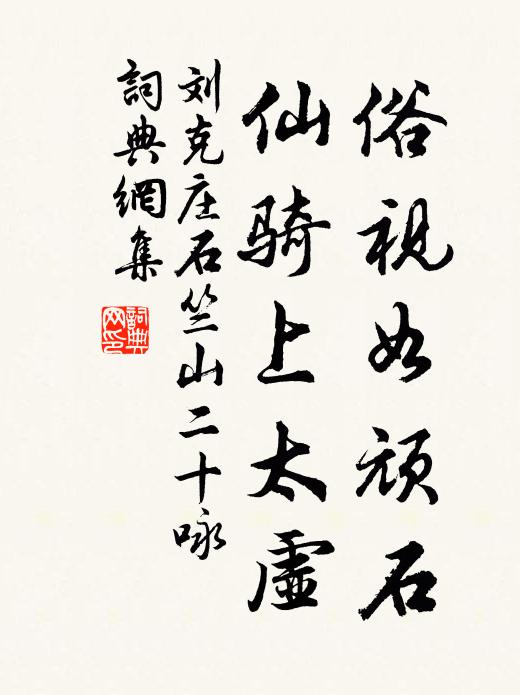 俗視如頑石
仙骑上太虛
刘克庄石竺山二十咏
詞典網集
詞典
网印